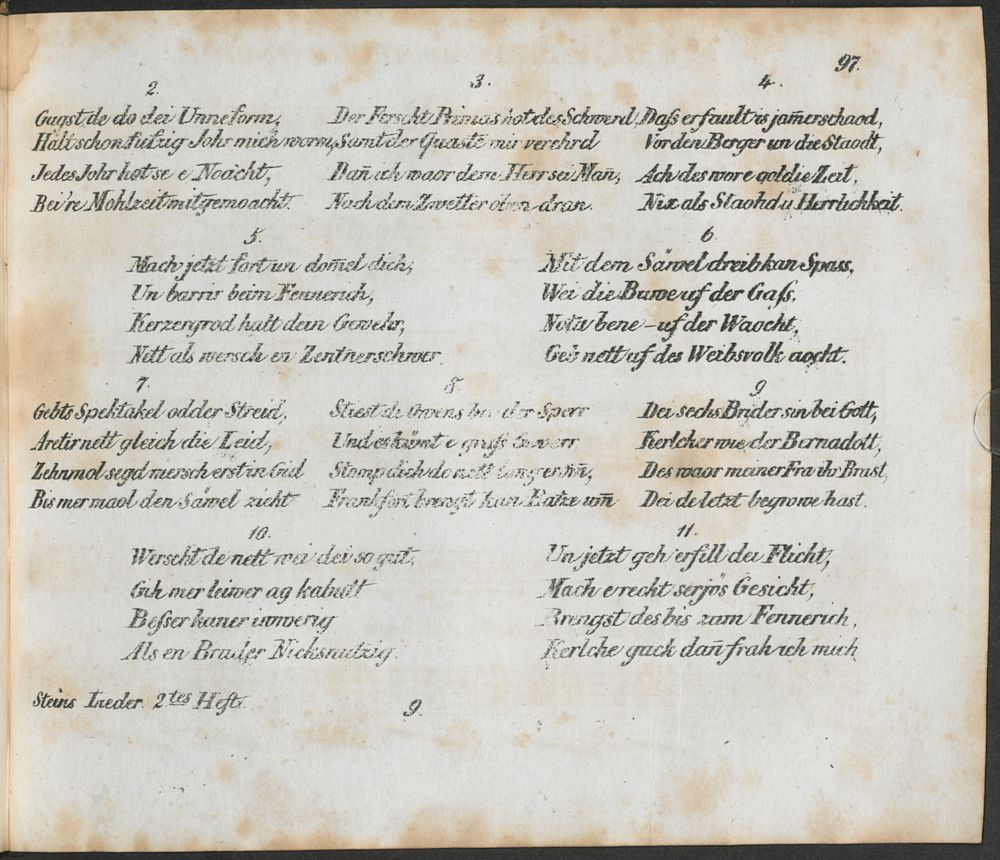 97.
2.
Gugst de do dei Unneform,
Hält schon fufzig Johr mich worm,
Jedes Johr hot se e Noacht,
Bei 're Mohlzeit mitgemoacht.
3.
Der Ferscht Primas hot des Schwerd
Samt der Quaste mir verehrd
Dañ ich waor dem Herr sei Mañ,
Noch dem Zwetter oben dran.
4.
Dass er fault is jam̄erschaod,
Vor den Berger un die Staodt,
Ach des wore goldie Zeit,
Nix als Staohd u Herrlichkeit.
5.
Mach jetzt fort un dom̄el dich,
Un barrir beim Fennerich,
Kerzergrod halt dein Gewehr,
Nett als wersch en Zentnerschwer
6.
Mit dem Säwel dreib kan Spass,
Wei die Buwe uf der Gaß,
Nota bene – uf der Waocht,
Geb nett uf des Weibsvolk aocht.
7.
Gebts Spektakel odder Streid,
Aretir nett gleich die Leid,
Zehnmol segd mersch erst in Gud
Bis mer maol den Säwel zicht
8.
Stiest de Owens bei der Sperr
Und es küm̄t e groß Gewerr
Stomp dich do nett
Frankfort brengt kan Katze um̄
9.
Dei sechs Brider sin bei Gott,
Kerlcher wie der Bernadott,
Des waor meiner Fra ihr Brust,
Dei de letzt begrowe hast.
10.
Werscht de nett wei dei so gut,
Gih mer leiwer ag kabutt
Besser kaner iwwerig
Als en Bruder Nicksnutzig.
11.
Un jetzt geh erfill dei Flicht,
Mach e reckt serjös Gesicht,
Brengst des bis zum Fennerich,
Kerlche guck dañ frah ich mich
Steins Lieder. 2tes Heft.
9.